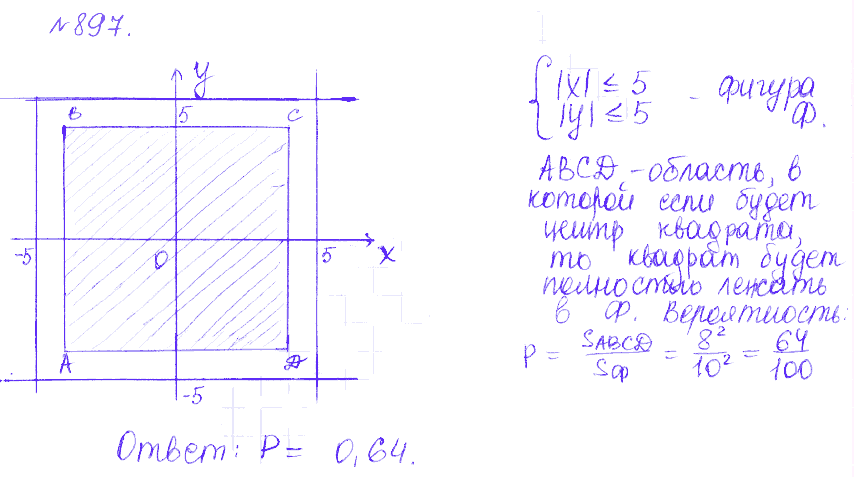 №897.
y
B
5
C
-5
O
5
x
A
D
-5
{ |x| ≤ 5
|y| ≤ 5 - фигура Ф.
ABCD - область, в
которой если будет
центр квадрата,
то квадрат будет
полностью лежать
в Ф. Вероятность:
P = S_ABCD / S_Ф = 8² / 10² = 64 / 100
Ответ: P = 0,64.